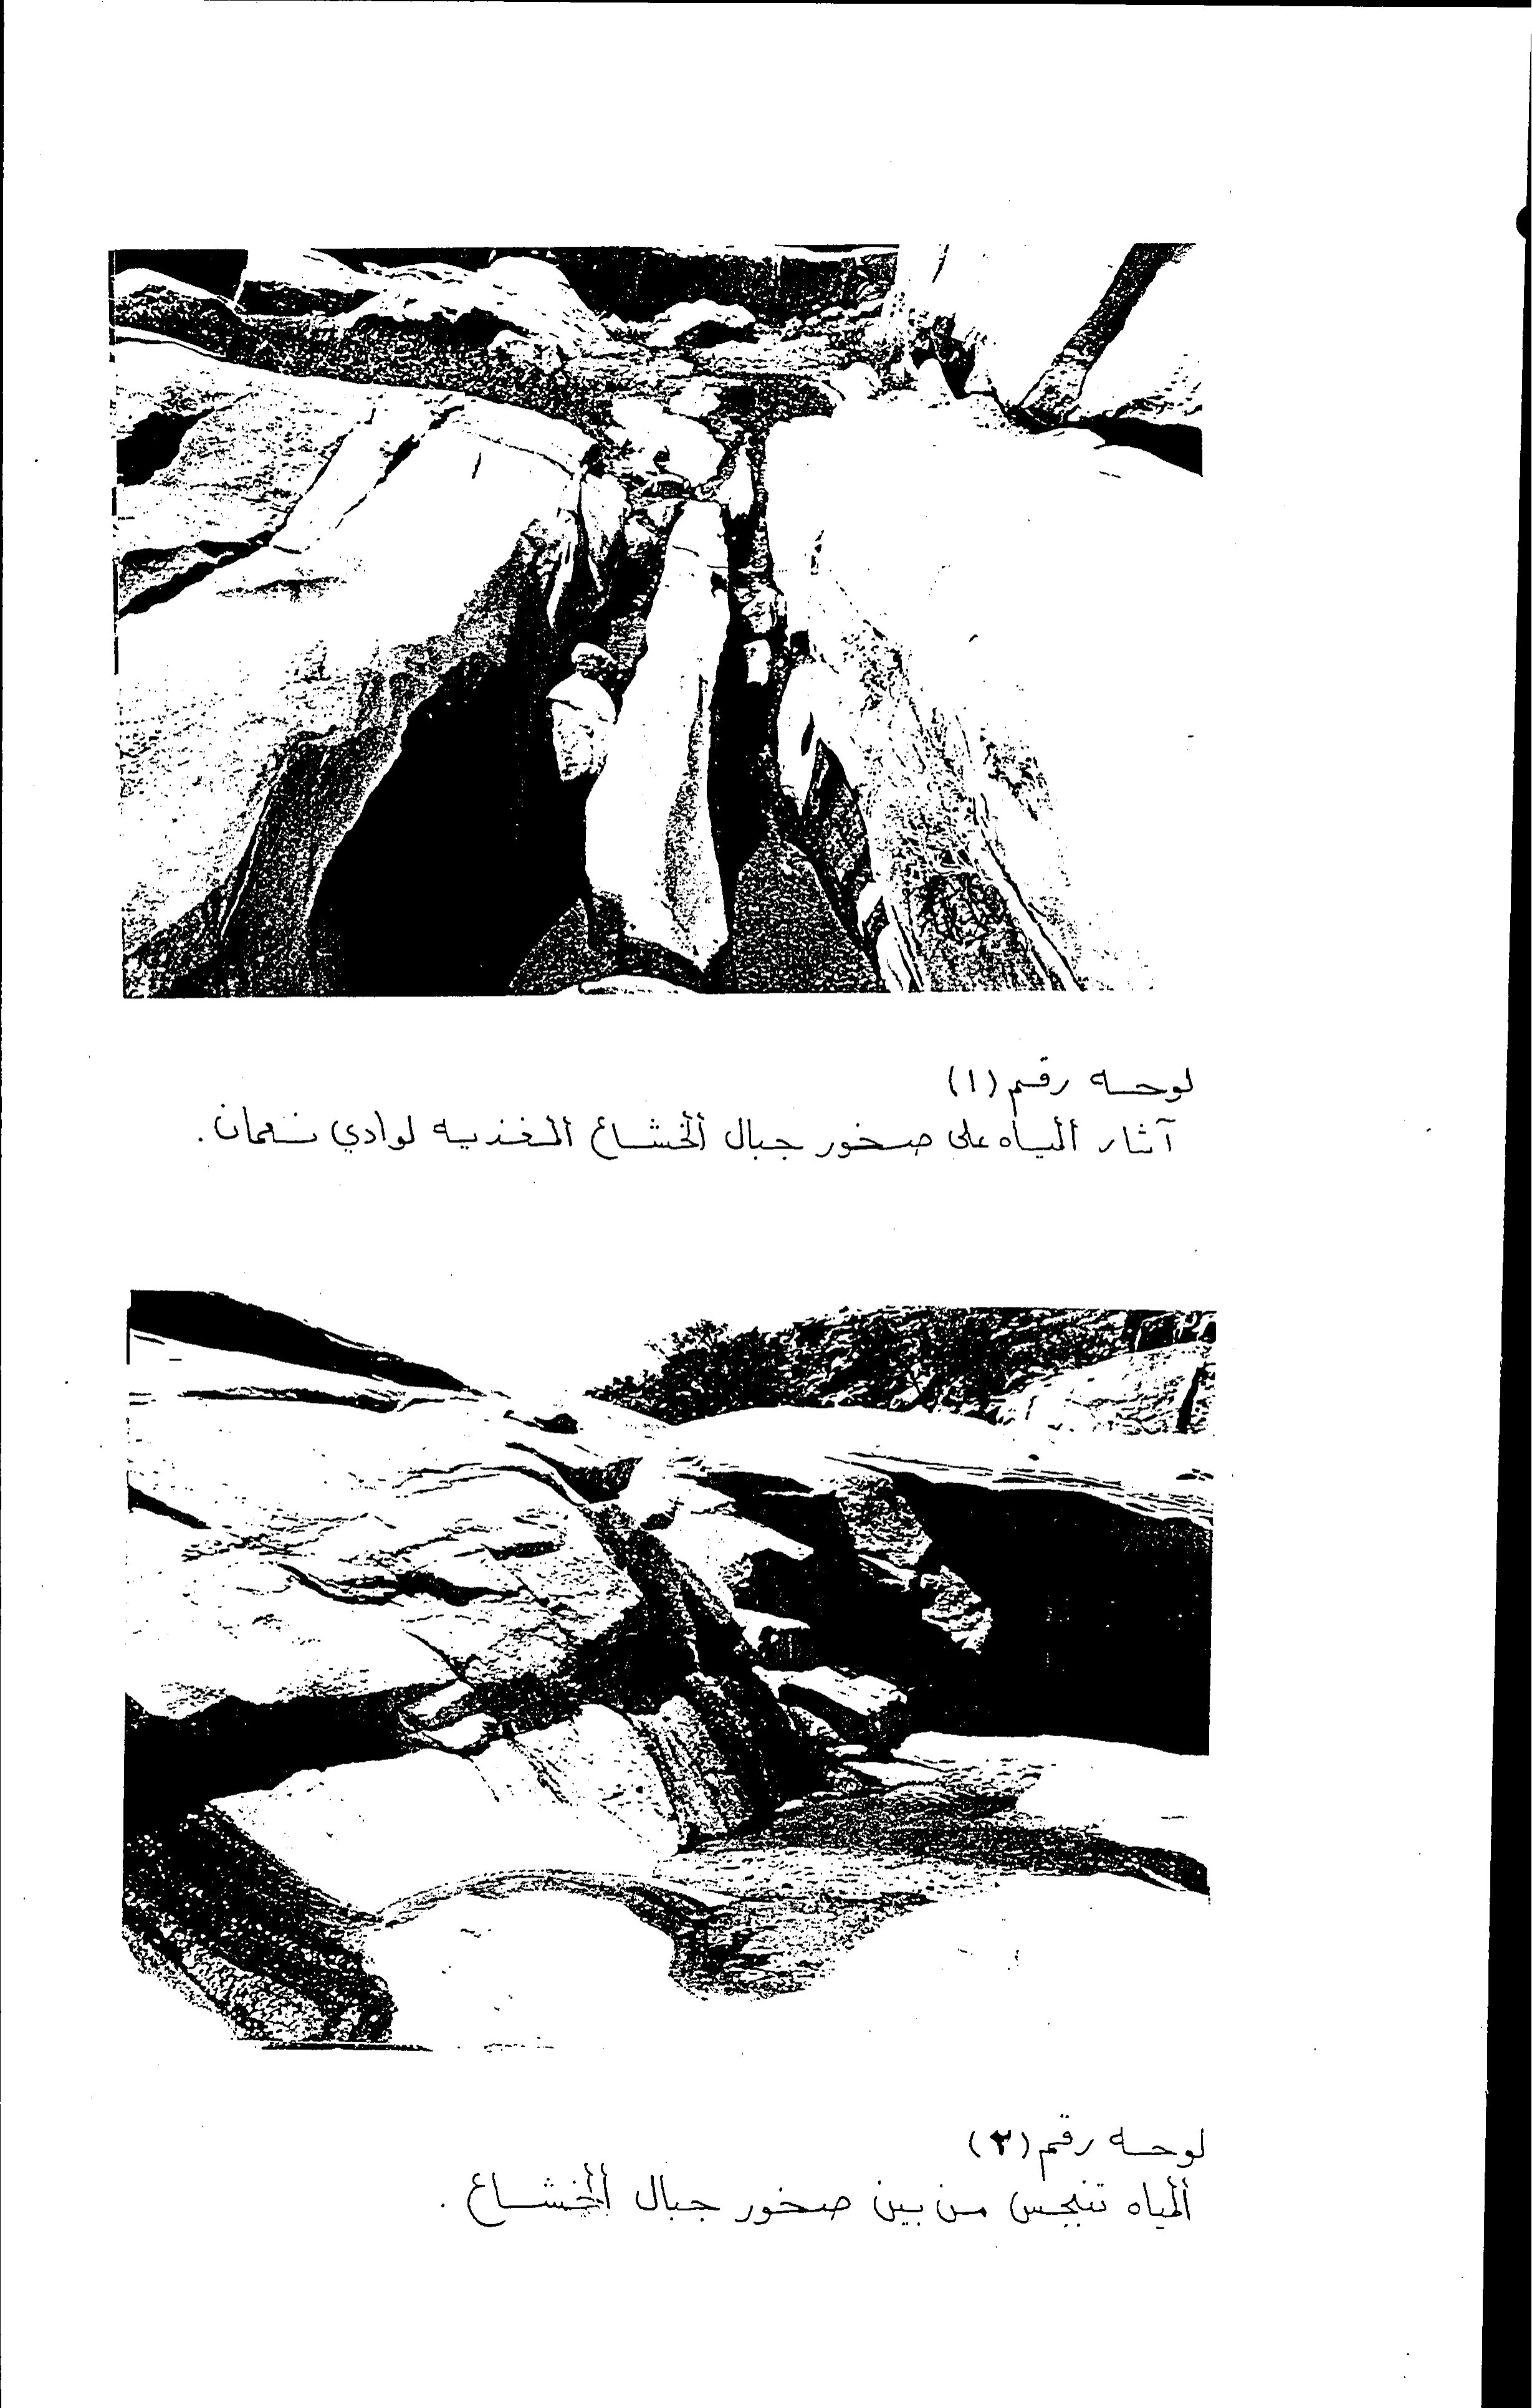 لوحه رقم (١)
آثار المياه على صخور جبال الخشاع المغذيه لوادي نعمان .
لوحه رقم (٢)
المياه تنبجس من بين صخور جبال الخشاع .